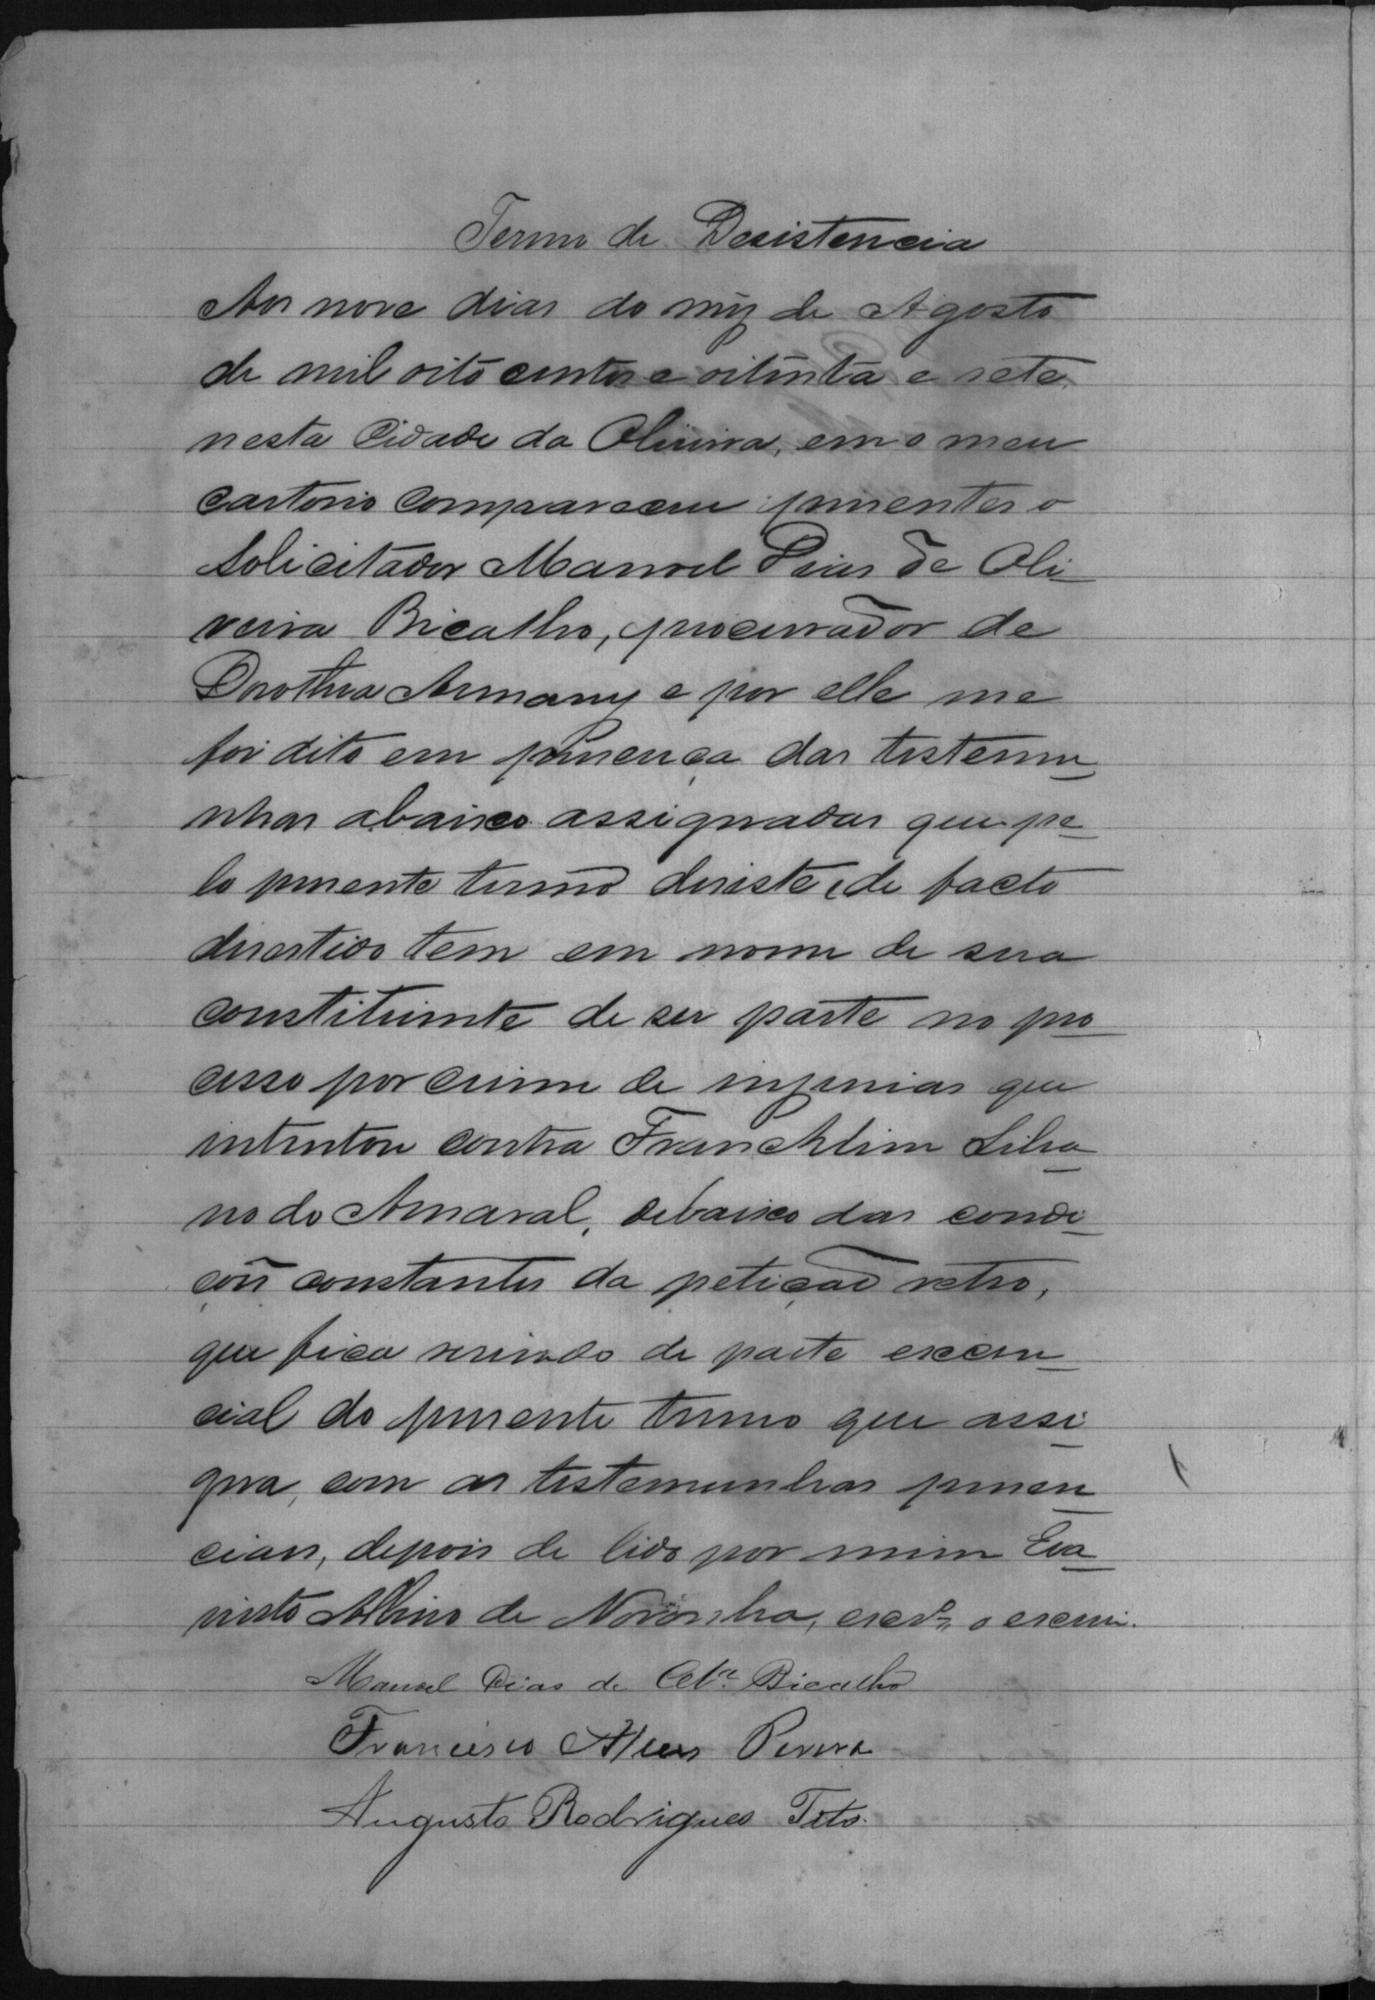 Termo de Desistencia
Aos nove dias do mez de Agosto
de mil oito centos e oitenta e sete,
nesta Cidade da Oliveira, em o meu
cartorio compareceu presentes o
Solicitador Manoel Dias de Oli-
veira Bicalho, procurador de
Dorothea Armany e por elle me
foi dito em presença das testemu-
nhas abaixo assignadas que pe-
lo presente termo desiste, e de facto
desestido tem em nome de sua
constituinte de ser parte no pro-
cesso por crime de injurias que
intentou contra Francklim Silva-
no do Amaral, debaixo das condi-
çoẽs constantes da petiçaõ retro,
que fica servindo de parte excen-
cial do presente termo que assi-
gna, com as testemunhas presen-
ciaes, depois de lido por mim Eva-
risto Albino de Noronha, escrm o escrevi.
Manoel Dias de Olvª Bicalho
Francisco Alves Pereira
Augusto Rodrigues Tito.